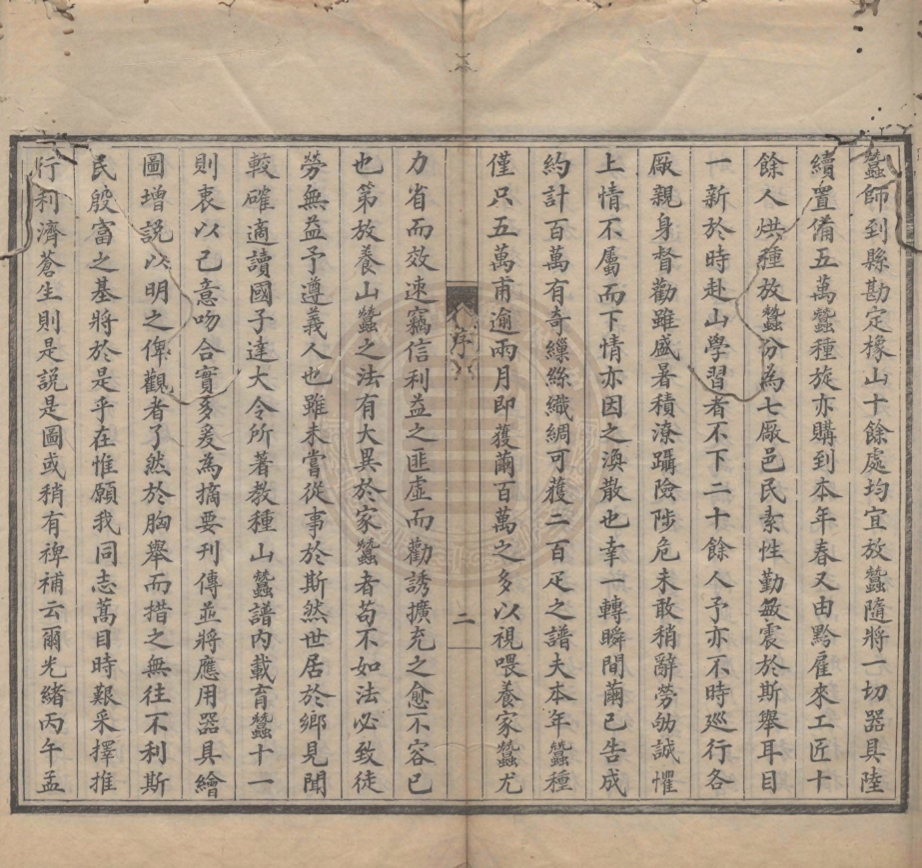 蠶師到縣勘定橡山十餘處均宜放蠶隨將一切器具陸
續置備五萬蠶種旋亦購到本年春又由黔雇來工匠十
餘人烘種放蠶分為七廠邑民素性勤敏震於斯舉耳目
一新於時赴山學習者不下二十餘人予亦不時廵行各
厰親身督勸雖盛暑積潦躡險陟危未敢稍辭勞勩誠懼
上情不屬而下情亦因之渙散也幸一轉瞬間繭已告成
約計百萬有奇繅絲織綢可獲二百疋之譜夫本年蠶種
僅只五萬甫逾兩月即獲繭百萬之多以視喂養家蠶尤
序
二
力省而效速竊信利益之匪虛而勸誘擴充之愈不容已
也第放養山蠶之法有大異於家蠶者苟不如法必致徒
勞無益予遵義人也雖未嘗從事於斯然世居於鄉見聞
較確適讀國子達大令所著教種山蠶譜内載育蠶十一
則衷以己意吻合實多爰為摘要刊傳並將應用器具繪
圖增説以明之俾觀者了然於胸舉而措之無往不利斯
民殷富之基將於是乎在惟願我同志蒿目時艱采擇推
行利濟蒼生則是説是圖或稍有裨補云爾光緒丙午孟